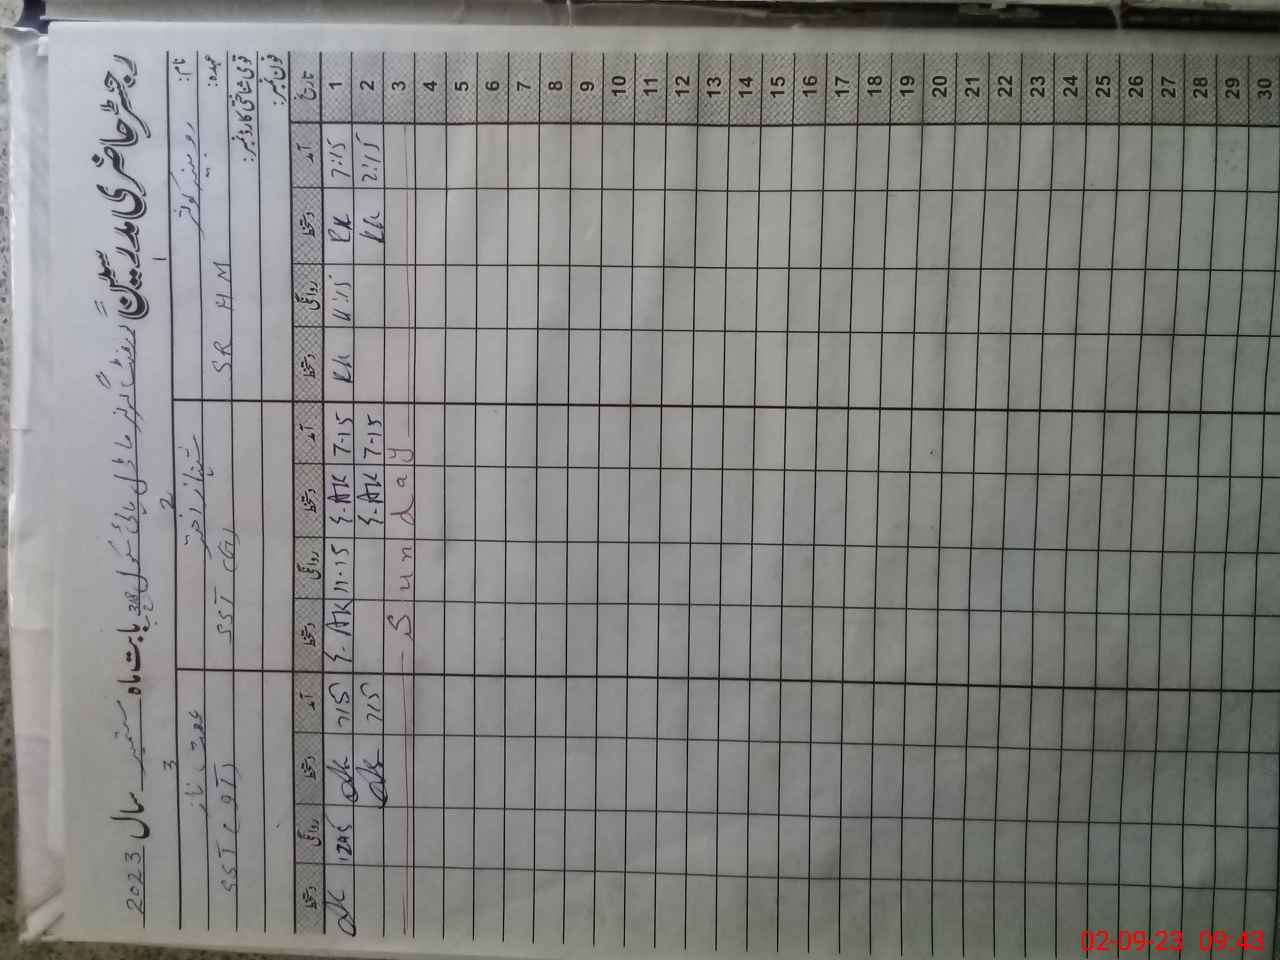 رجسٹر حاضری مدرسین گورنمنٹ گرلز ماڈل ہائی سکول بابت ماہ ستمبر سال 2023
1 2 3
نام: روبینہ کوثر شہناز اختر
عہدہ: SR H M SST (G) SST (
قومی شناختی کارڈ نمبر:
فون نمبر:
تاریخ آمد دستخط روانگی دستخط آمد دستخط روانگی دستخط آمد دستخط روانگی دستخط
1 7:15 RK 11:15 RK 7-15 S.AK 11-15 S.AK 715 1245
2 7:15 RK 7-15 S.AK 715
3 Sunday
4
5
6
7
8
9
10
11
12
13
14
15
16
17
18
19
20
21
22
23
24
25
26
27
28
29
30
02-09-23 09:43